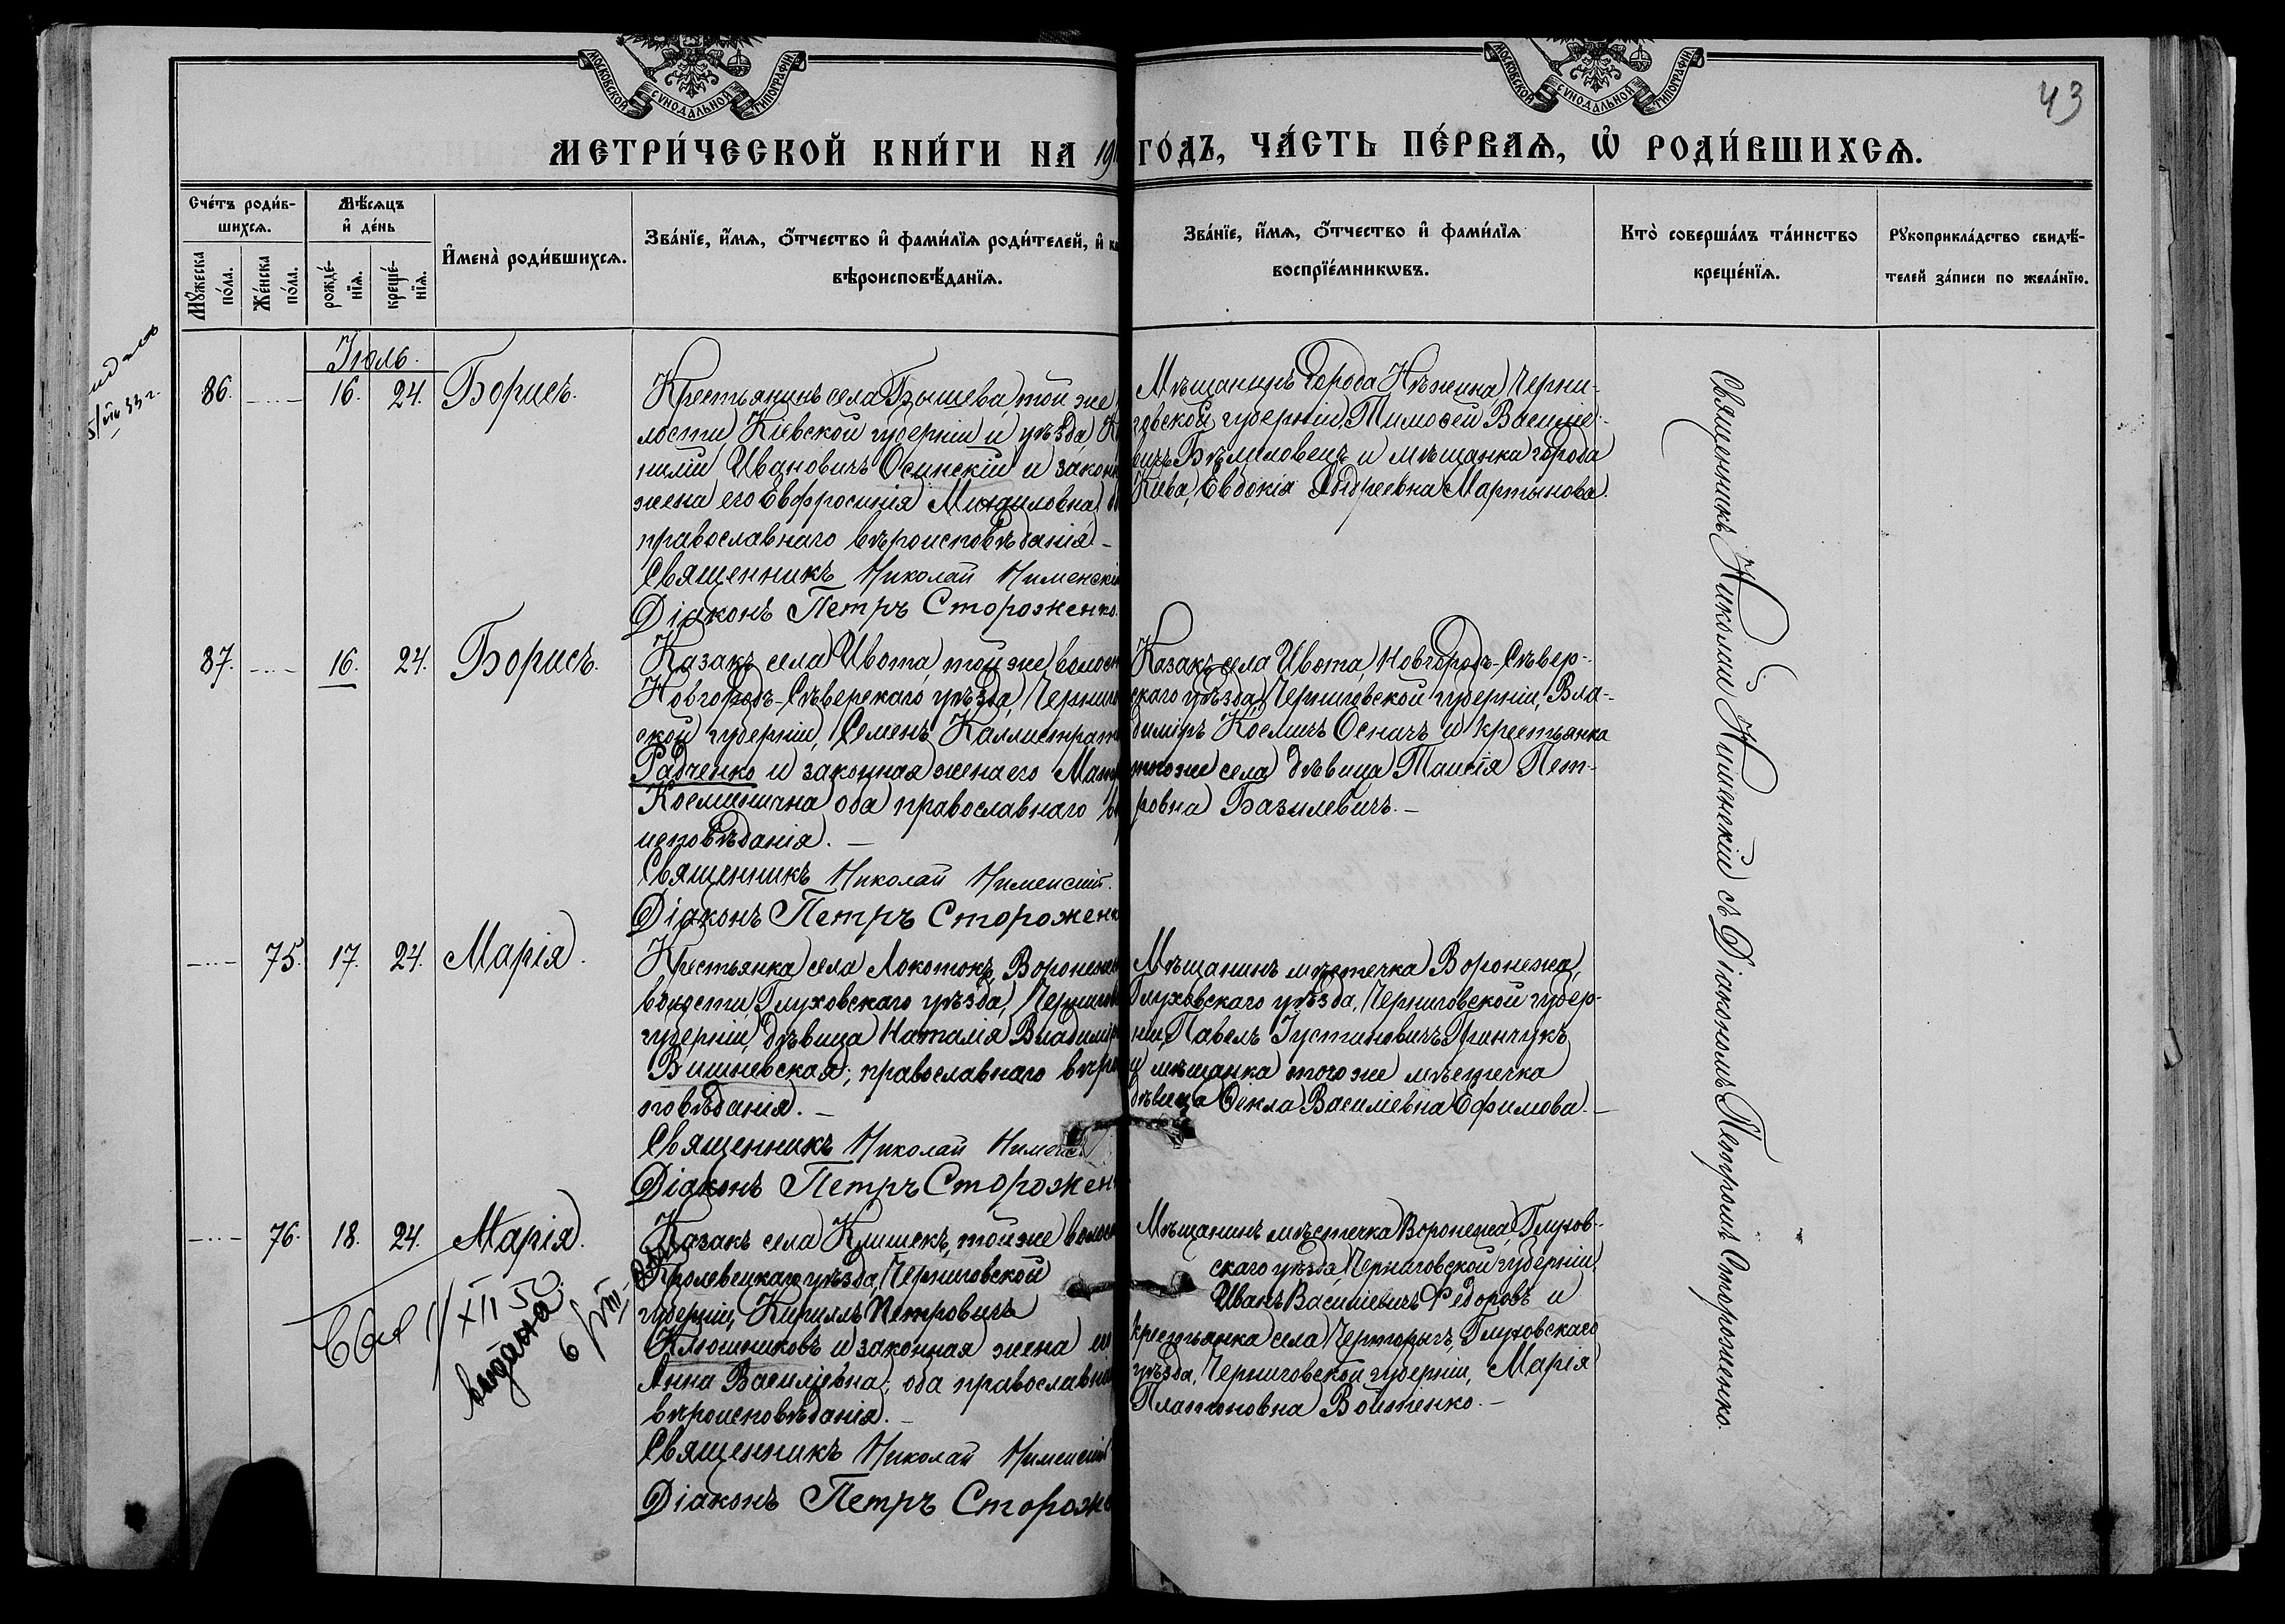 МОСКОВСКОЙ СУНОДАЛЬНОЙ ТИПОГРАФІИ
МОСКОВСКОЙ СУНОДАЛЬНОЙ ТИПОГРАФІИ
43
МЕТРИ́ЧЕСКОЙ КНИ́ГИ НА 19
ГО́ДЪ, ЧА́СТЬ ПЕ́РВАѦ, Ѡ҆ РОДИ́ВШИХСѦ.
Сче́тъ роди́в-
шихсѧ.
Мꙋ́жеска по́ла.
Же́нска по́ла.
Мѣ́сѧцъ
и҆ де́нь
рожде́-
нїѧ.
креще́-
нїѧ.
И҆мена̀ роди́вшихсѧ.
Зва́нїе, и҆́мѧ, ѻ҆́тчество и҆ фами́лїѧ роди́телей, и҆
вѣроисповѣ́данїѧ.
Зва́нїе, и҆́мѧ, ѻ҆́тчество и҆ фами́лїѧ
воспрїе́мникѡвъ.
Кто̀ соверша́лъ та́инство
креще́нїѧ.
Рꙋкоприкла́дство свидѣ́-
телей за́писи по жела́нїю.
Іюль.
86. 16. 24. Борисъ.
Крестьянинъ села Бышева, той же
лости, Кіевской губерніи и уѣзда
нилій Ивановичъ Осинскій и закон
жена его Евфросинія Михаиловна,
православнаго вѣроисповѣданія. –
Священникъ Николай Нименскі
Діаконъ Петръ Стороженко.
Мѣщанинъ города Нѣжина, Черни-
говской губерніи, Тимоѳей Василіе-
вичъ Бѣлиловецъ и мѣщанка города
Кіева, Евдокія Андреевна Мартынова.
87. 16. 24. Борисъ.
Казакъ села Ивота, той же волост
Новгородъ-Сѣверскаго уѣзда, Черниго
ской губерніи, Семенъ Каллистрат
Радченко и законная жена его Мат
Косминична, оба православнаго в
исповѣданія. –
Священникъ Николай Нименскій.
Діаконъ Петръ Стороженк
Казакъ села Ивота, Новгородъ-Сѣвер-
скаго уѣзда, Черниговской губерніи, Вла-
диміръ Космичъ Осначъ и крестьянка
того же села, дѣвица Таисія Пет-
ровна Базилевичъ. –
75. 17. 24. Марія.
Крестьянка села Локотокъ, Воронежс
волости, Глуховскаго уѣзда, Чернигов
губерніи, дѣвица Наталія Владимір
Вишневская, православнаго вѣрои
повѣданія. –
Священникъ Николай Нименс
Діаконъ Петръ Сторожен
Мѣщанинъ мѣстечка Воронежа,
Глуховскаго уѣзда, Черниговской губер-
ніи, Павелъ Іустиновичъ Гринчукъ
и мѣщанка того же мѣстечка
дѣвица Ѳекла Василіевна Ефимова. –
76. 18. 24. Марія.
Казакъ села Клишекъ, той же волос
Кролевецкаго уѣзда, Черниговской
губерніи, Кириллъ Петровичъ
Клюшниковъ и законная жена е
Анна Василіевна; оба православна
вѣроисповѣданія. –
Священникъ Николай Нименскій
Діаконъ Петръ Стороже
Мѣщанинъ мѣстечка Воронежа, Глухов-
скаго уѣзда, Черниговской губерніи,
Иванъ Василіевичъ Ѳедоровъ и
крестьянка села Черторыгъ, Глуховскаго
уѣзда, Черниговской губерніи, Марія
Платоновна Войтенко. –
XII 50
выдана
6/VIII
Священникъ Николай Нименскій съ Діакономъ Петромъ Стороженко.